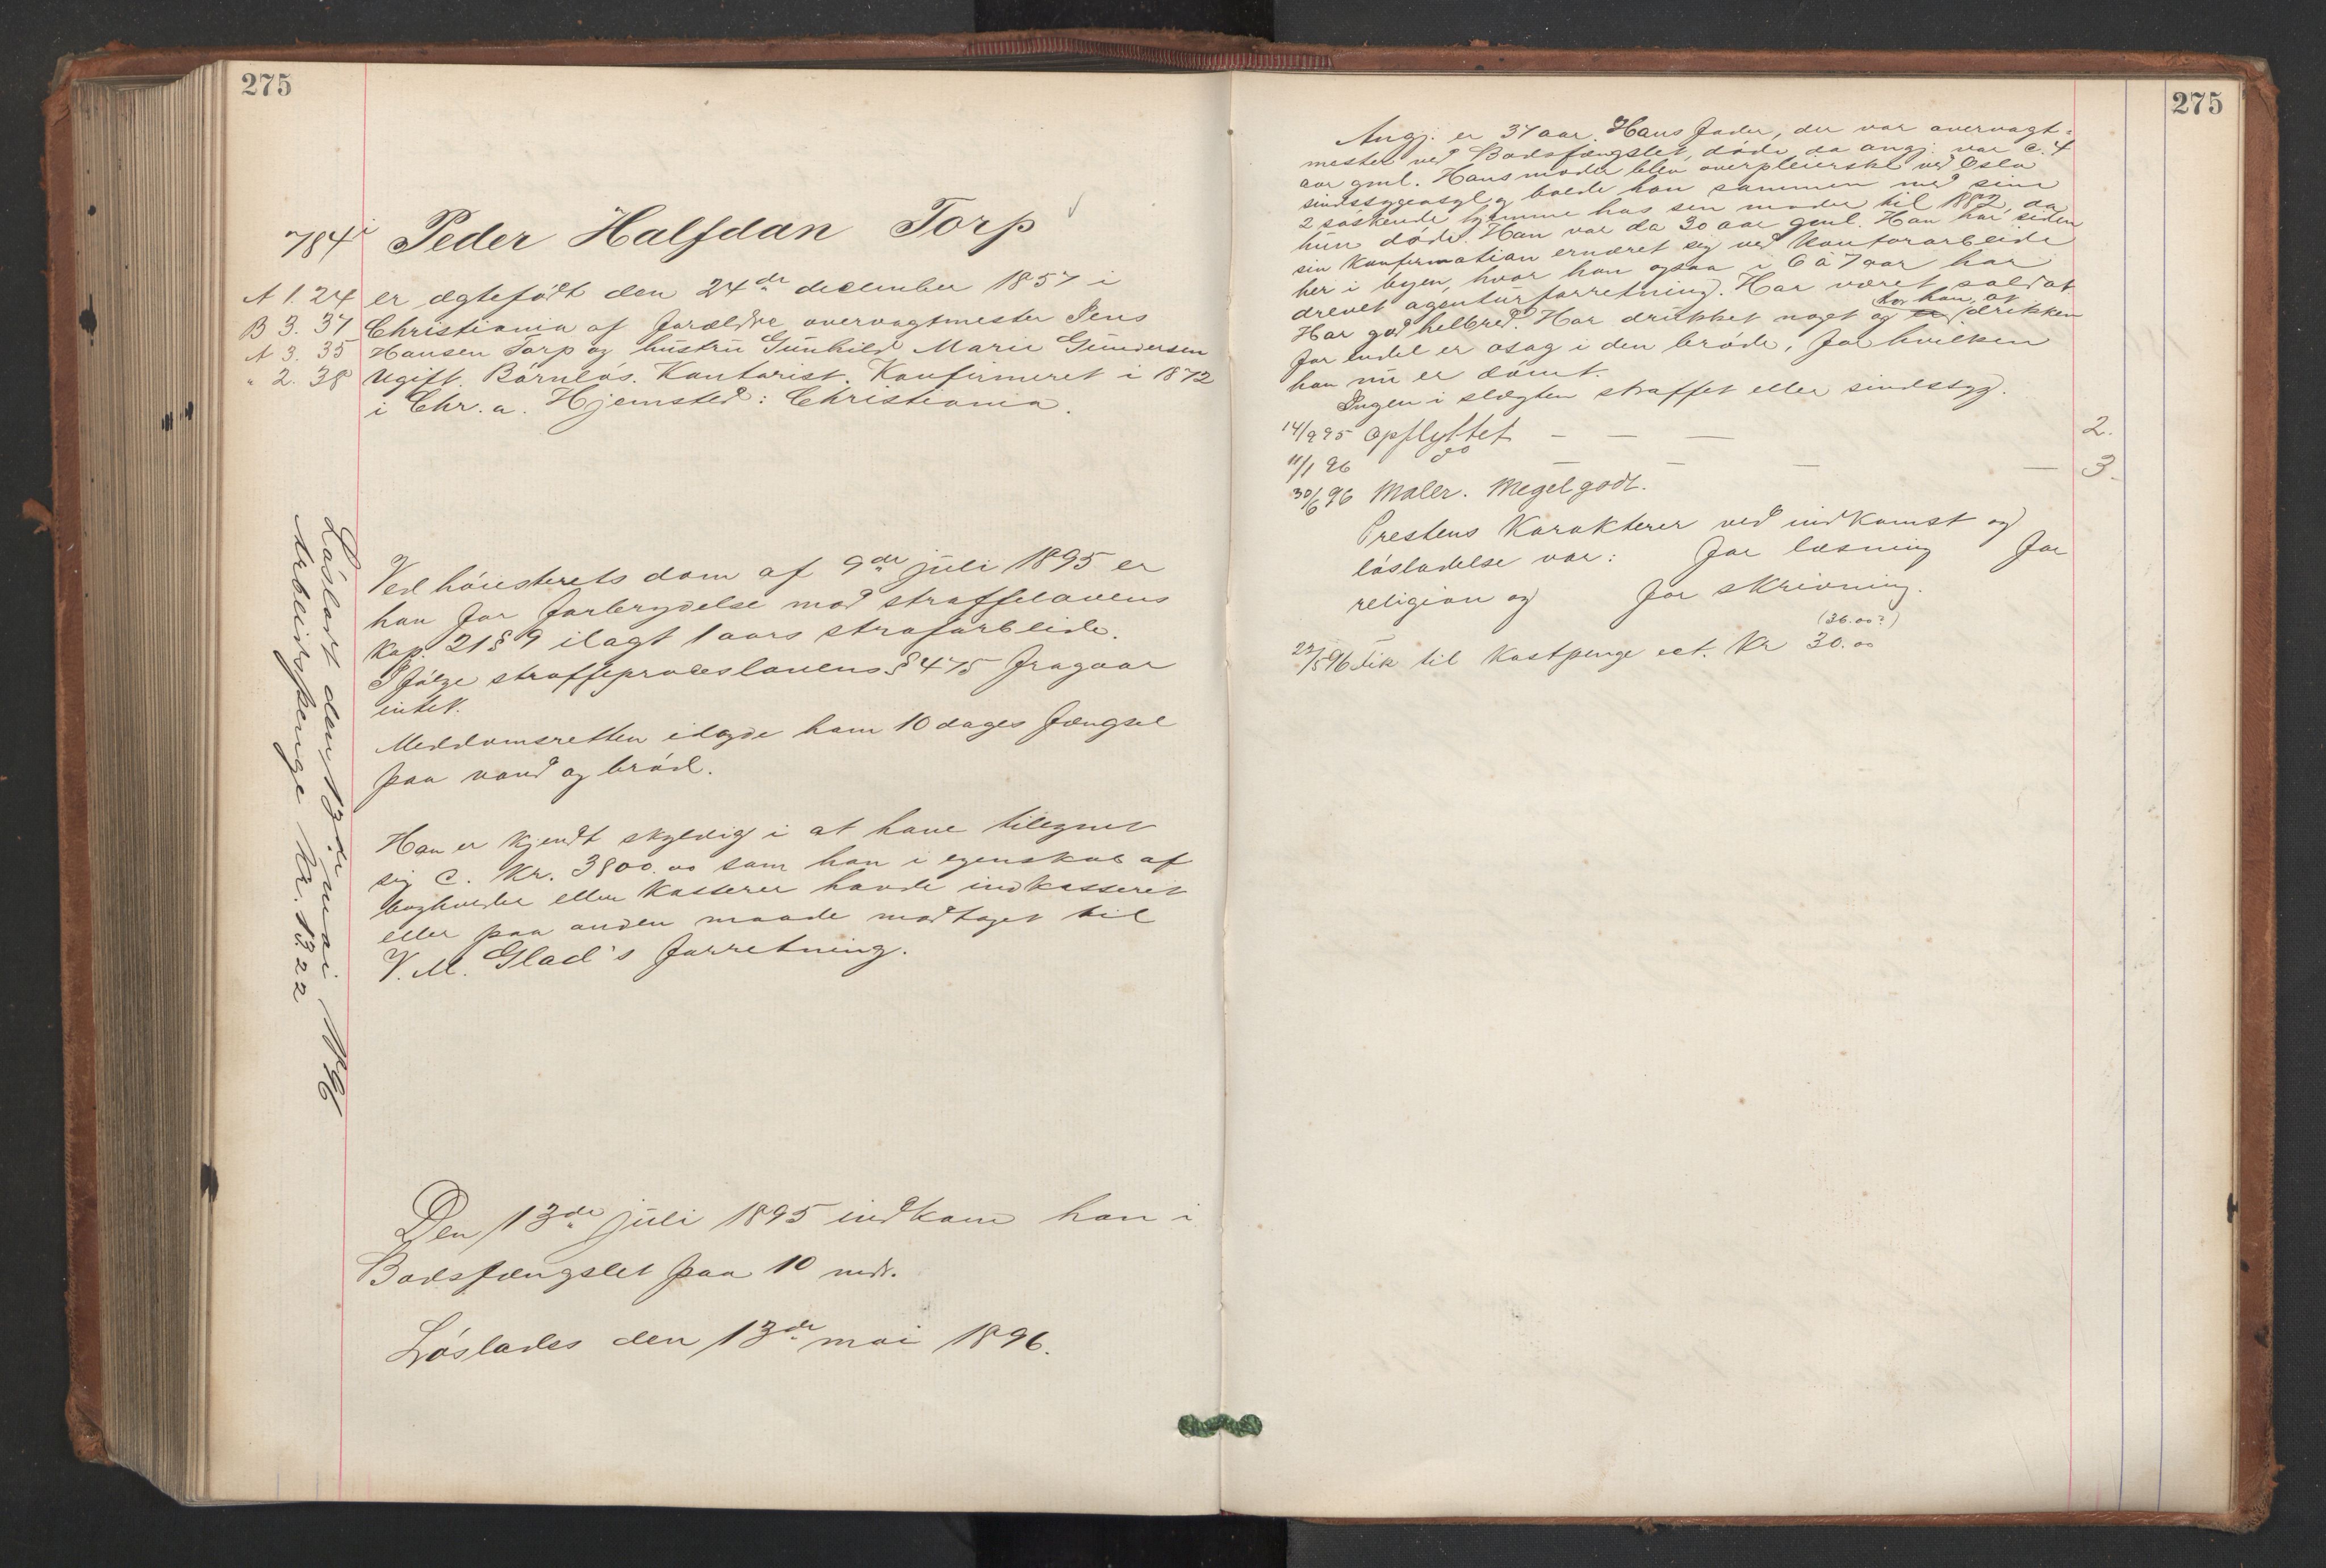 275
784 i Peder Halfdan Torp
A 1. 24 er ægtefødt den 24de december 1857 i
B 3. 37 Christiania af forældre overvagtmester Jens
A 3. 35 Hansen Torp og hustru Gunhild Marie Gundersen
" 2. 38 Ugift. Børnløs. Kontorist. Konfirmeret i 1872
i Chr.a. Hjemsted: Christiania.
Løsladt den 13de mai 1896
Arbeidspenge Kr. 13.22
Ved høiesterets dom af 9de juli 1895 er
han for forbrydelse mod straffelovens
Kap. 21 § 9 ilagt 1 aars strafarbeide.
I følge straffeproceslovens § 475 fragaar
intet.
Meddomsretten idøgde ham 10 dages fængsel
paa vand og brød.
Han er kjendt skyldig i at have tilegnet
sig c. Kr. 3800.00 som han i egenskab af
bogholder eller kasserer havde indkasseret
eller paa anden maade modtaget til
V. M. Glad's forretning.
Den 13de juli 1895 indkom han i
Bodsfængslet paa 10 mdr.
Løslades den 13de mai 1896.
275
Angj. er 37 aar. Hans fader, der var overvagt-
mester ved Bodsfængslet, døde da angj. var c. 4
aar gml. Hans moder blev overpleierske ved Oslo
sindssygeasyl og boede han sammen med sine
2 søskende hjemme hos sin moder til 1887, da
hun døde. Han var da 30 aar gml. Han har siden
sin Konfirmation ernæret sig ved Kontorarbeide
her i byen, hvor han ogsaa i 6 à 7 aar har
drevet agenturforretning. Har været soldat.
Har god helbred. Har drukket noget og tror han, at drikken
for endel er aarsag i den brøde, for hvilken
han nu er dømt.
Ingen i slægten straffet eller sindssyg.
14/9 95 Opflyttet — — — 2.
11/1 96 do — — — — 3.
30/6 96 Maler. Meget godt.
Prestens Karakterer ved indkomst og
løsladelse var: for læsning for
religion og for skrivning.
(36.00?)
22/5 96 Fik til Kostpenge ect. Kr 30.00